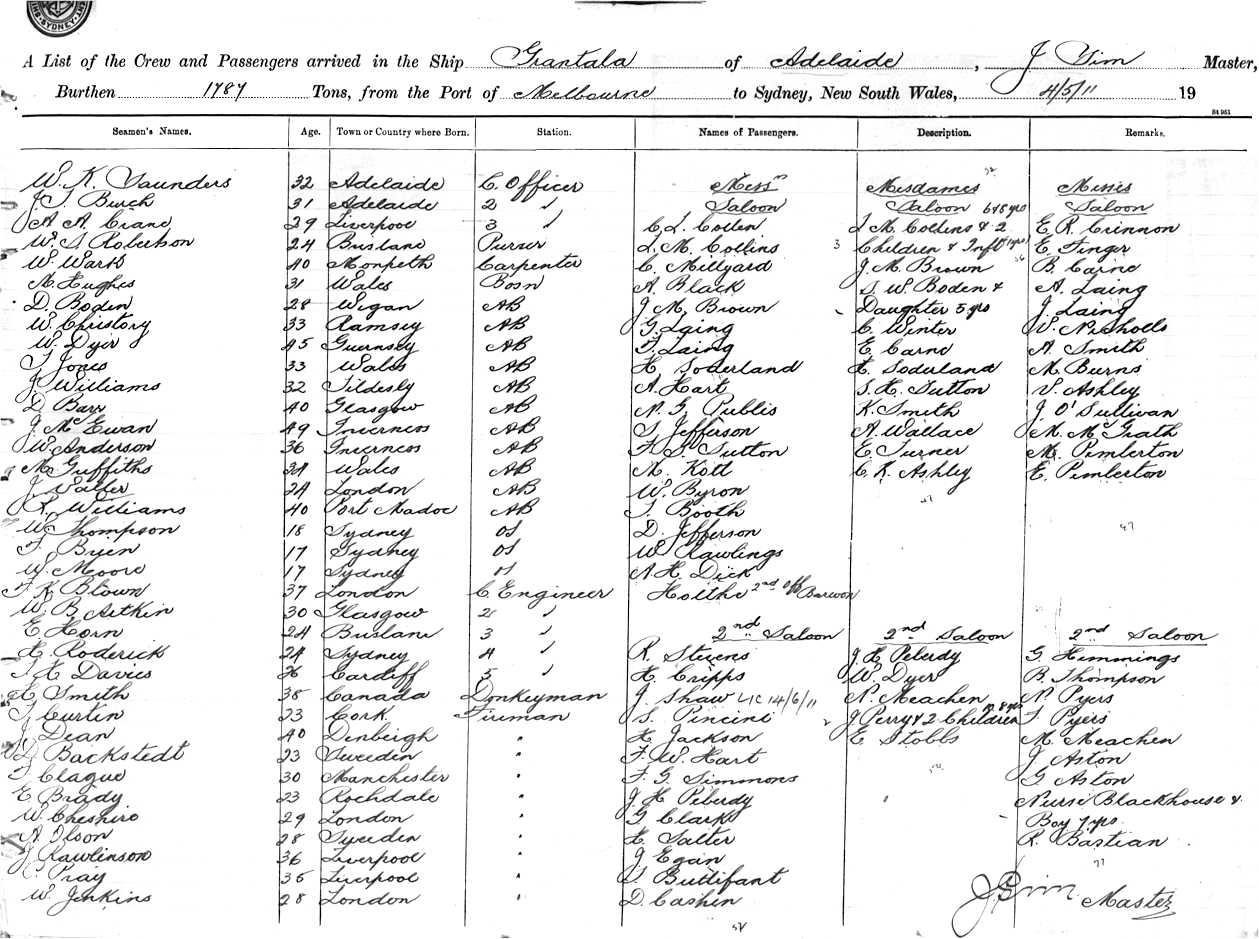 SYDNEY
A List of the Crew and Passengers arrived in the Ship Grantala of Adelaide, J Sim Master,
Burthen 1787 Tons, from the Port of Melbourne to Sydney, New South Wales, 4/5/11 19
S4 951
Seamen's Names. Age. Town or Country where Born. Station. Names of Passengers. Description. Remarks.
W. K. Saunders 32 Adelaide C. Officer Messrs Mesdames Misses
J S. Burch 31 Adelaide 2 " Saloon Saloon 6 & 8 yrs Saloon
A A. Crane 29 Liverpool 3 " C. L. Collen L M. Collins & 2 E R. Crinnon
W. S Robertson 24 Brisbane Purser L. M. Collins 3 Children & Inft E. Finger
W. Wark 40 Monpeth Carpenter C. Millyard J. M. Brown B. Carne
M. Hughes 31 Wales Bosn A. Black S. W. Boden & A. Laing
D. Boden 28 Wigan AB J M. Brown Daughter 5 yrs J. Laing
W. Christory 33 Ramsey AB G. Laing C. Winter W. Nicholls
W. Dyer 45 Guernsey AB F. Laing E. Carne A. Smith
T Jones 33 Wales AB H. Soderland H. Soderland M. Burns
J Williams 32 Tildesly AB A. Hart S. H. Sutton V. Ashley
D. Barr 40 Glasgow AB N. G. Publis K. Smith J. O'Sullivan
J. McEwan 49 Inverness AB S. Jefferson A. Wallace M. McGrath
W. Anderson 36 Inverness AB F. S. Sutton E. Turner M. Pimberton
M. Griffiths 34 Wales AB M. Kott C. R. Ashley E. Pimberton
J. Walter 24 London AB W. Byron
R. Williams 40 Port Madoc AB T. Booth 47
W. Thompson 18 Sydney OS D. Jefferson 47
F. Byen 17 Sydney OS W. Rawlings
W. Moore 17 Sydney OS A. H. Dick
F. K. Blown 37 London C Engineer Holthe 2nd Off Barwon
W. B. Aitkin 30 Glasgow 2 "
E Horn 24 Brisbane 3 " 2nd Saloon 2nd Saloon 2nd Saloon
H. Roderick 24 Sydney 4 " R. Stevens J. H Peberdy G. Himmings
T H Davies 26 Cardiff 5 " H. Cripps W. Dyer B. Thompson
H Smith 38 Canada Donkeyman J. Shaw 14/6/11 N. Meachen N. Pyers
T. Curtin 23 Cork Fireman S. Pincini 2 J Perry & 2 Children T. Pyers
J. Dean 40 Denbeigh " H. Jackson E Stobbs M. Meachen
D. Backstedt 23 Sweden " F. W. Hart J Aston
T. Clague 30 Manchester " F. G. Simmons G Aston
E. Brady 23 Rochdale " J. H Peberdy Nurse Blackhouse &
W. Cheshire 29 London " G. Clark Boy 7 yrs
A. Olson 28 Sweden " H. Salter R. Bastian
J Rawlinson 36 Liverpool " J Egan
C Pray 35 Liverpool " S Buttifant
W. Jenkins 28 London " D. Cashen J Sim Master